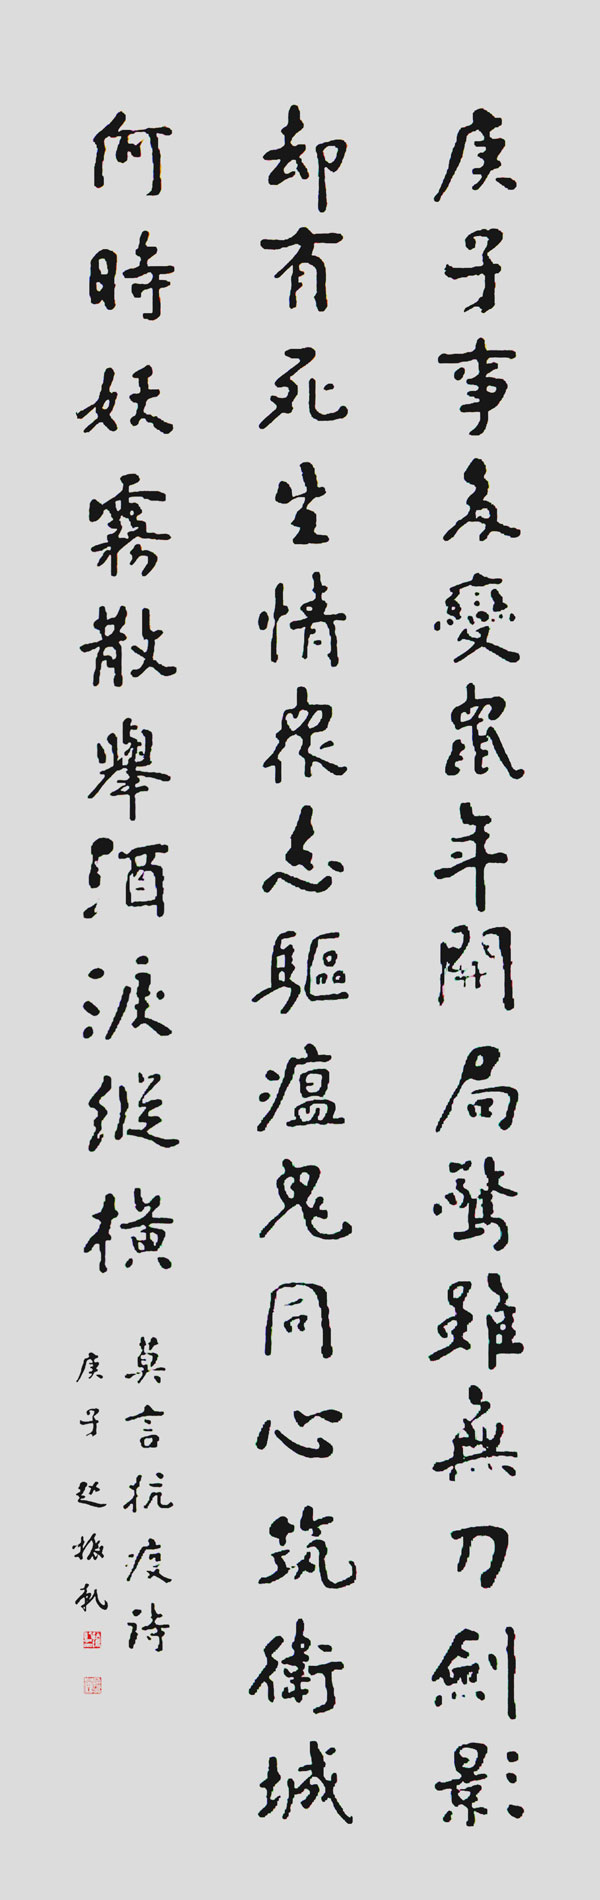 庚子事多變鼠年開局驚雖無刀劍影
却有死生情眾志驅瘟鬼同心筑衛城
何時妖霧散舉酒淚縱橫
莫言抗疫詩
庚子赵振乾